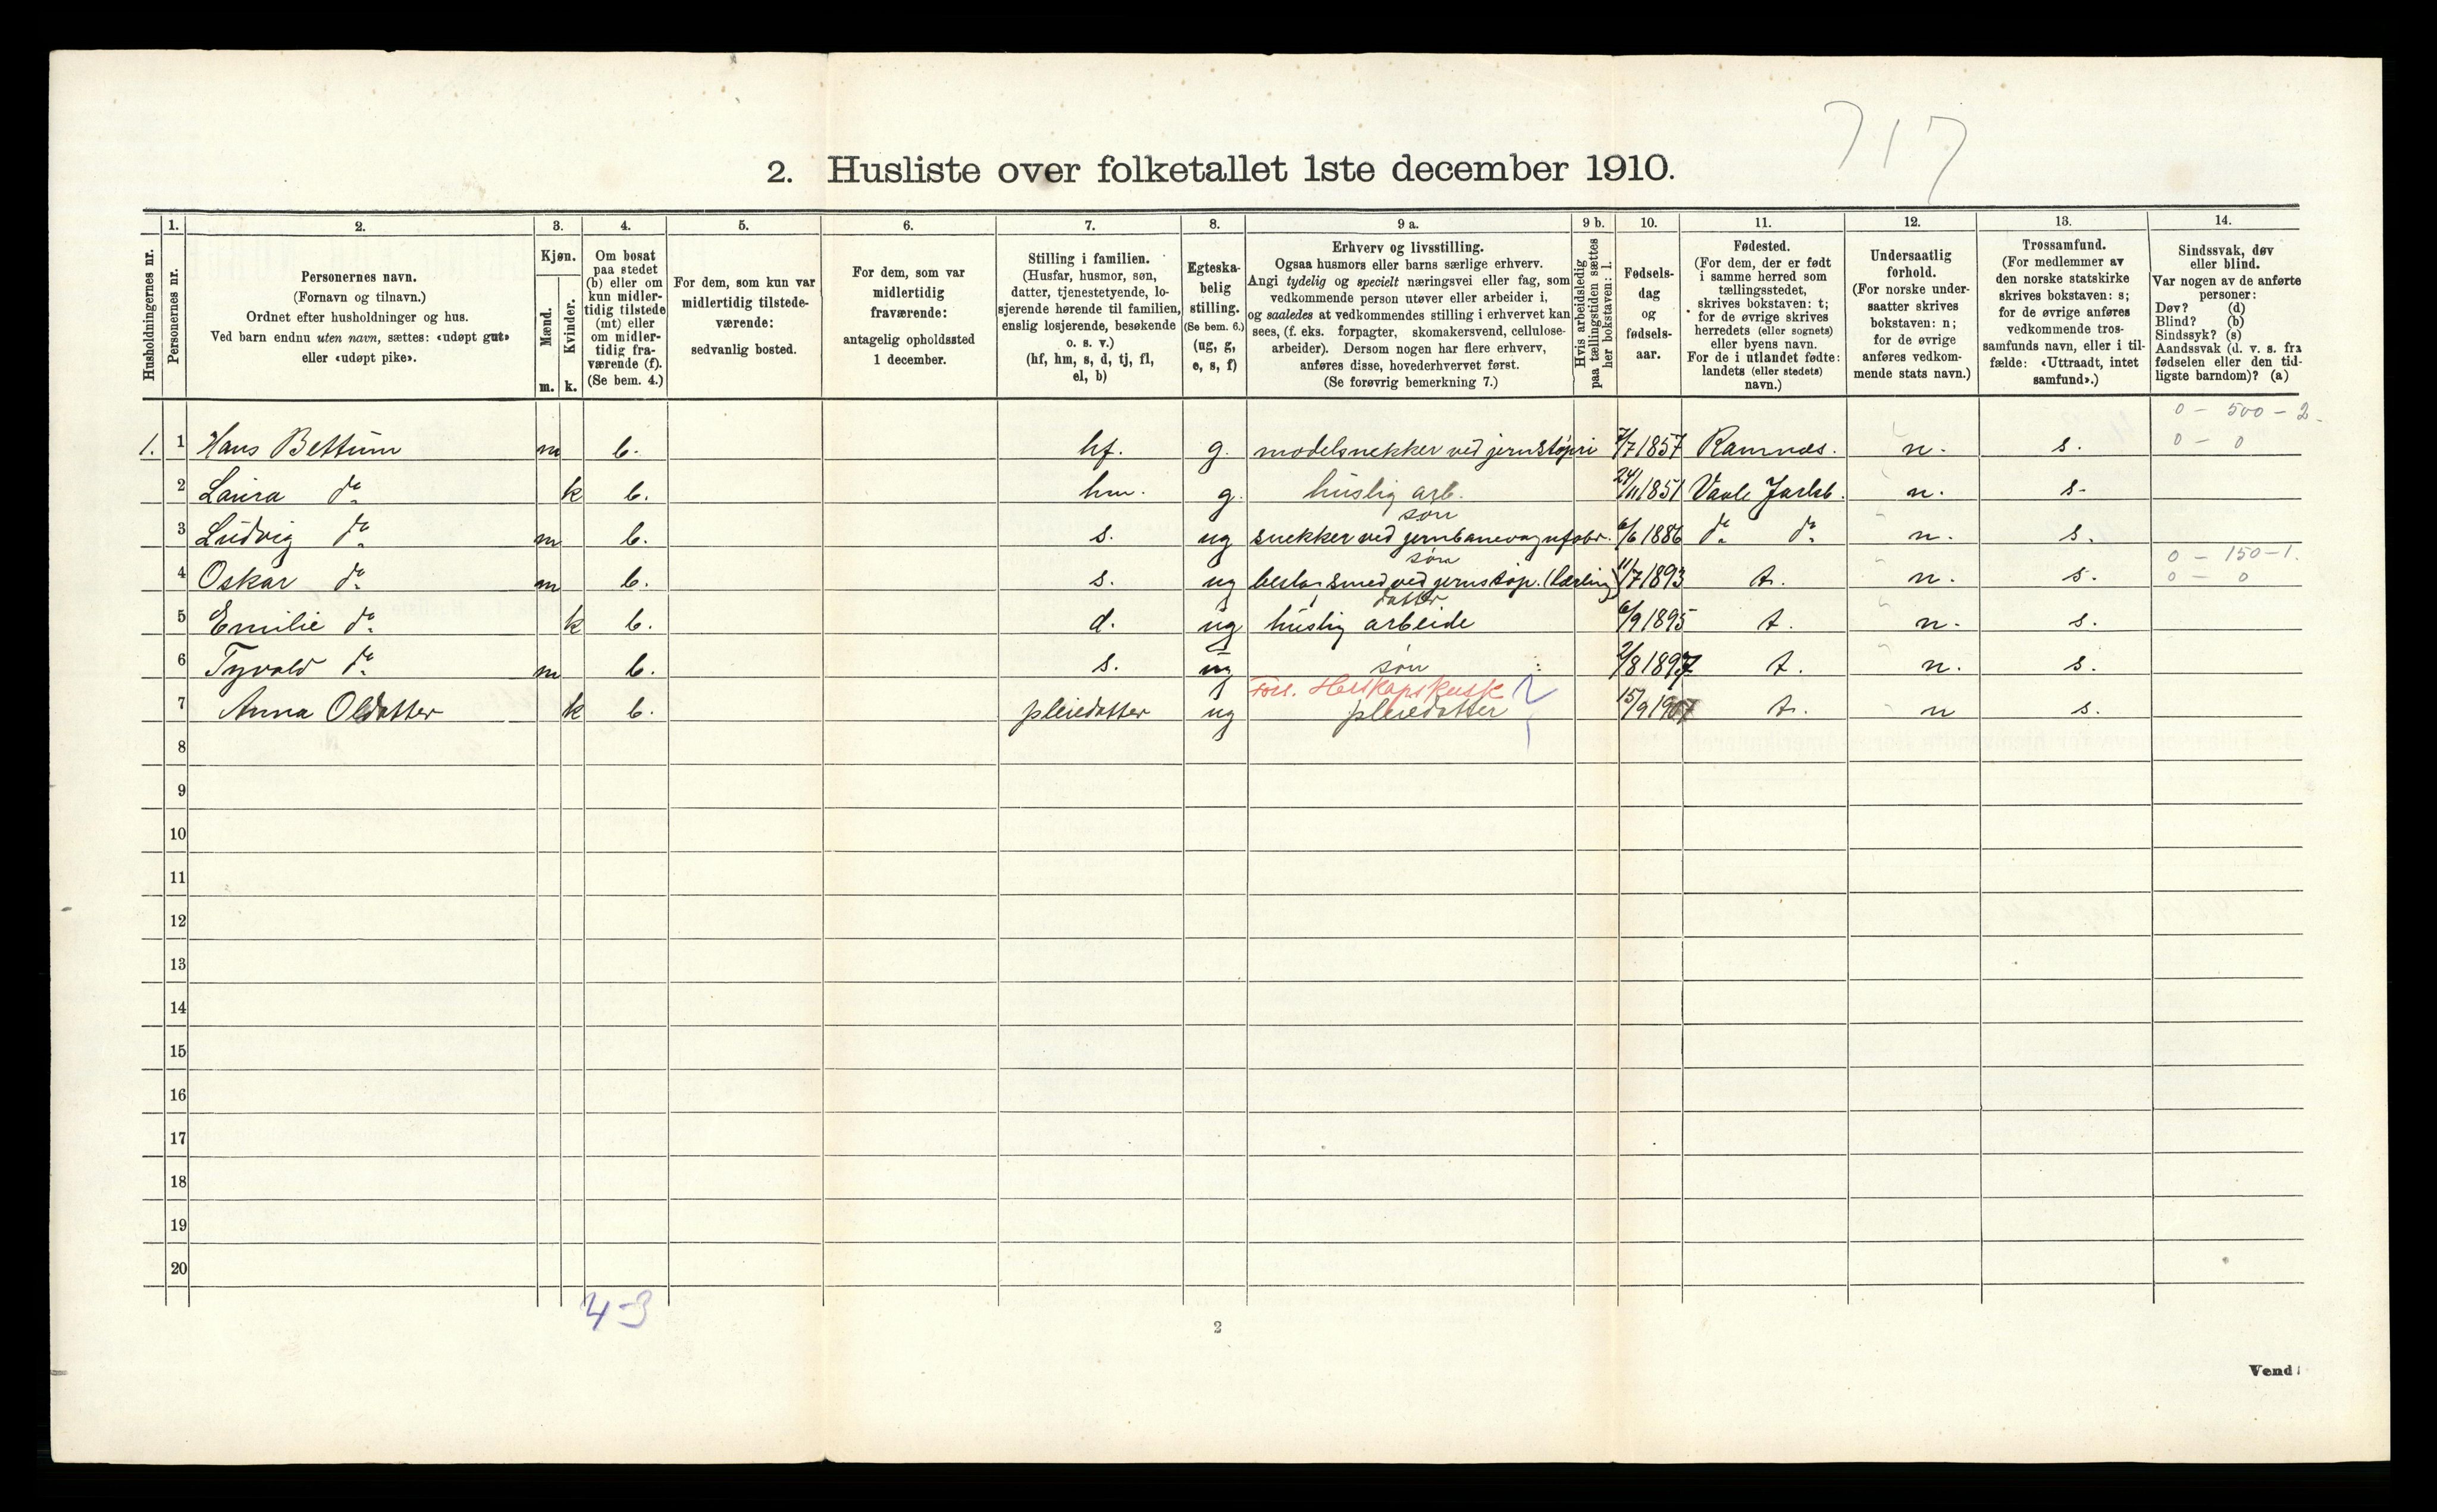 717
2. Husliste over folketallet 1ste december 1910.
Husholdningernes nr.
1.
Personernes nr.
2.
Personernes navn.
(Fornavn og tilnavn.)
Ordnet efter husholdninger og hus.
Ved barn endnu uten navn, sættes: «udøpt gut»
eller «udøpt pike».
3.
Kjøn.
Mænd.
Kvinder.
m. k.
4.
Om bosat
paa stedet
(b) eller om
kun midler-
tidig tilstede
(mt) eller
om midler-
tidig fra-
værende (f).
(Se bem. 4.)
5.
For dem, som kun var
midlertidig tilstede-
værende:
sedvanlig bosted.
6.
For dem, som var
midlertidig
fraværende:
antagelig opholdssted
1 december.
7.
Stilling i familien.
(Husfar, husmor, søn,
datter, tjenestetyende, lo-
sjerende hørende til familien,
enslig losjerende, besøkende
o. s. v.)
(hf, hm, s, d, tj, fl,
el, b)
8.
Egteska-
belig
stilling.
(Se bem. 6.)
(ug, g,
e, s, f)
9 a.
Erhverv og livsstilling.
Ogsaa husmors eller barns særlige erhverv.
Angi tydelig og specielt næringsvei eller fag, som
vedkommende person utøver eller arbeider i,
og saaledes at vedkommendes stilling i erhvervet kan
sees, (f. eks. forpagter, skomakersvend, cellulose-
arbeider). Dersom nogen har flere erhverv,
anføres disse, hovederhvervet først.
(Se forøvrig bemerkning 7.)
9 b.
Hvis arbeidsledig
paa tællingstiden sættes
her bokstaven: l.
10.
Fødsels-
dag
og
fødsels-
aar.
11.
Fødested.
(For dem, der er født
i samme herred som
tællingsstedet,
skrives bokstaven: t;
for de øvrige skrives
herredets (eller sognets)
eller byens navn.
For de i utlandet fødte:
landets (eller stedets)
navn.)
12.
Undersaatlig
forhold.
(For norske under-
saatter skrives
bokstaven: n;
for de øvrige
anføres vedkom-
mende stats navn.)
13.
Trossamfund.
(For medlemmer av
den norske statskirke
skrives bokstaven: s;
for de øvrige anføres
vedkommende tros-
samfunds navn, eller i til-
fælde: «Uttraadt, intet
samfund».)
14.
Sindssvak, døv
eller blind.
Var nogen av de anførte
personer:
Døv? (d)
Blind? (b)
Sindssyk? (s)
Aandssvak (d. v. s. fra
fødselen eller den tid-
ligste barndom)? (a)
0 - 500 - 2.
1. 1 Hans Bettum m b. hf. g. modelsnekker ved jernstøperi 7/7 1857 Ramnes. n. s. 0 - 0
2 Laura do k b. hm. g. huslig arb. 24/11 1851 Vaale Jarlsb. n. s.
søn
3 Ludvig do m b. s. ug snekker ved jernbanevognfabr. 6/6 1886 do do n. s.
søn 0 - 150 - 1.
4 Oskar do m b. s. ug beslagsmed ved jernstøp. (lærling) 11/7 1893 t. n. s. 0 - 0
datter
5 Emilie do k b. d. ug huslig arbeide 6/9 1895 t. n. s.
6 Tyvald do m b. s. ug søn 2/8 1897 t. n. s.
Fors. Herskapskusk 2
7 Anna Olsdatter k b. pleiedatter ug pleiedatter 15/9 1907 t. n s.
8
9
10
11
12
13
14
15
16
17
18
19
20
4-3
2
Vend!